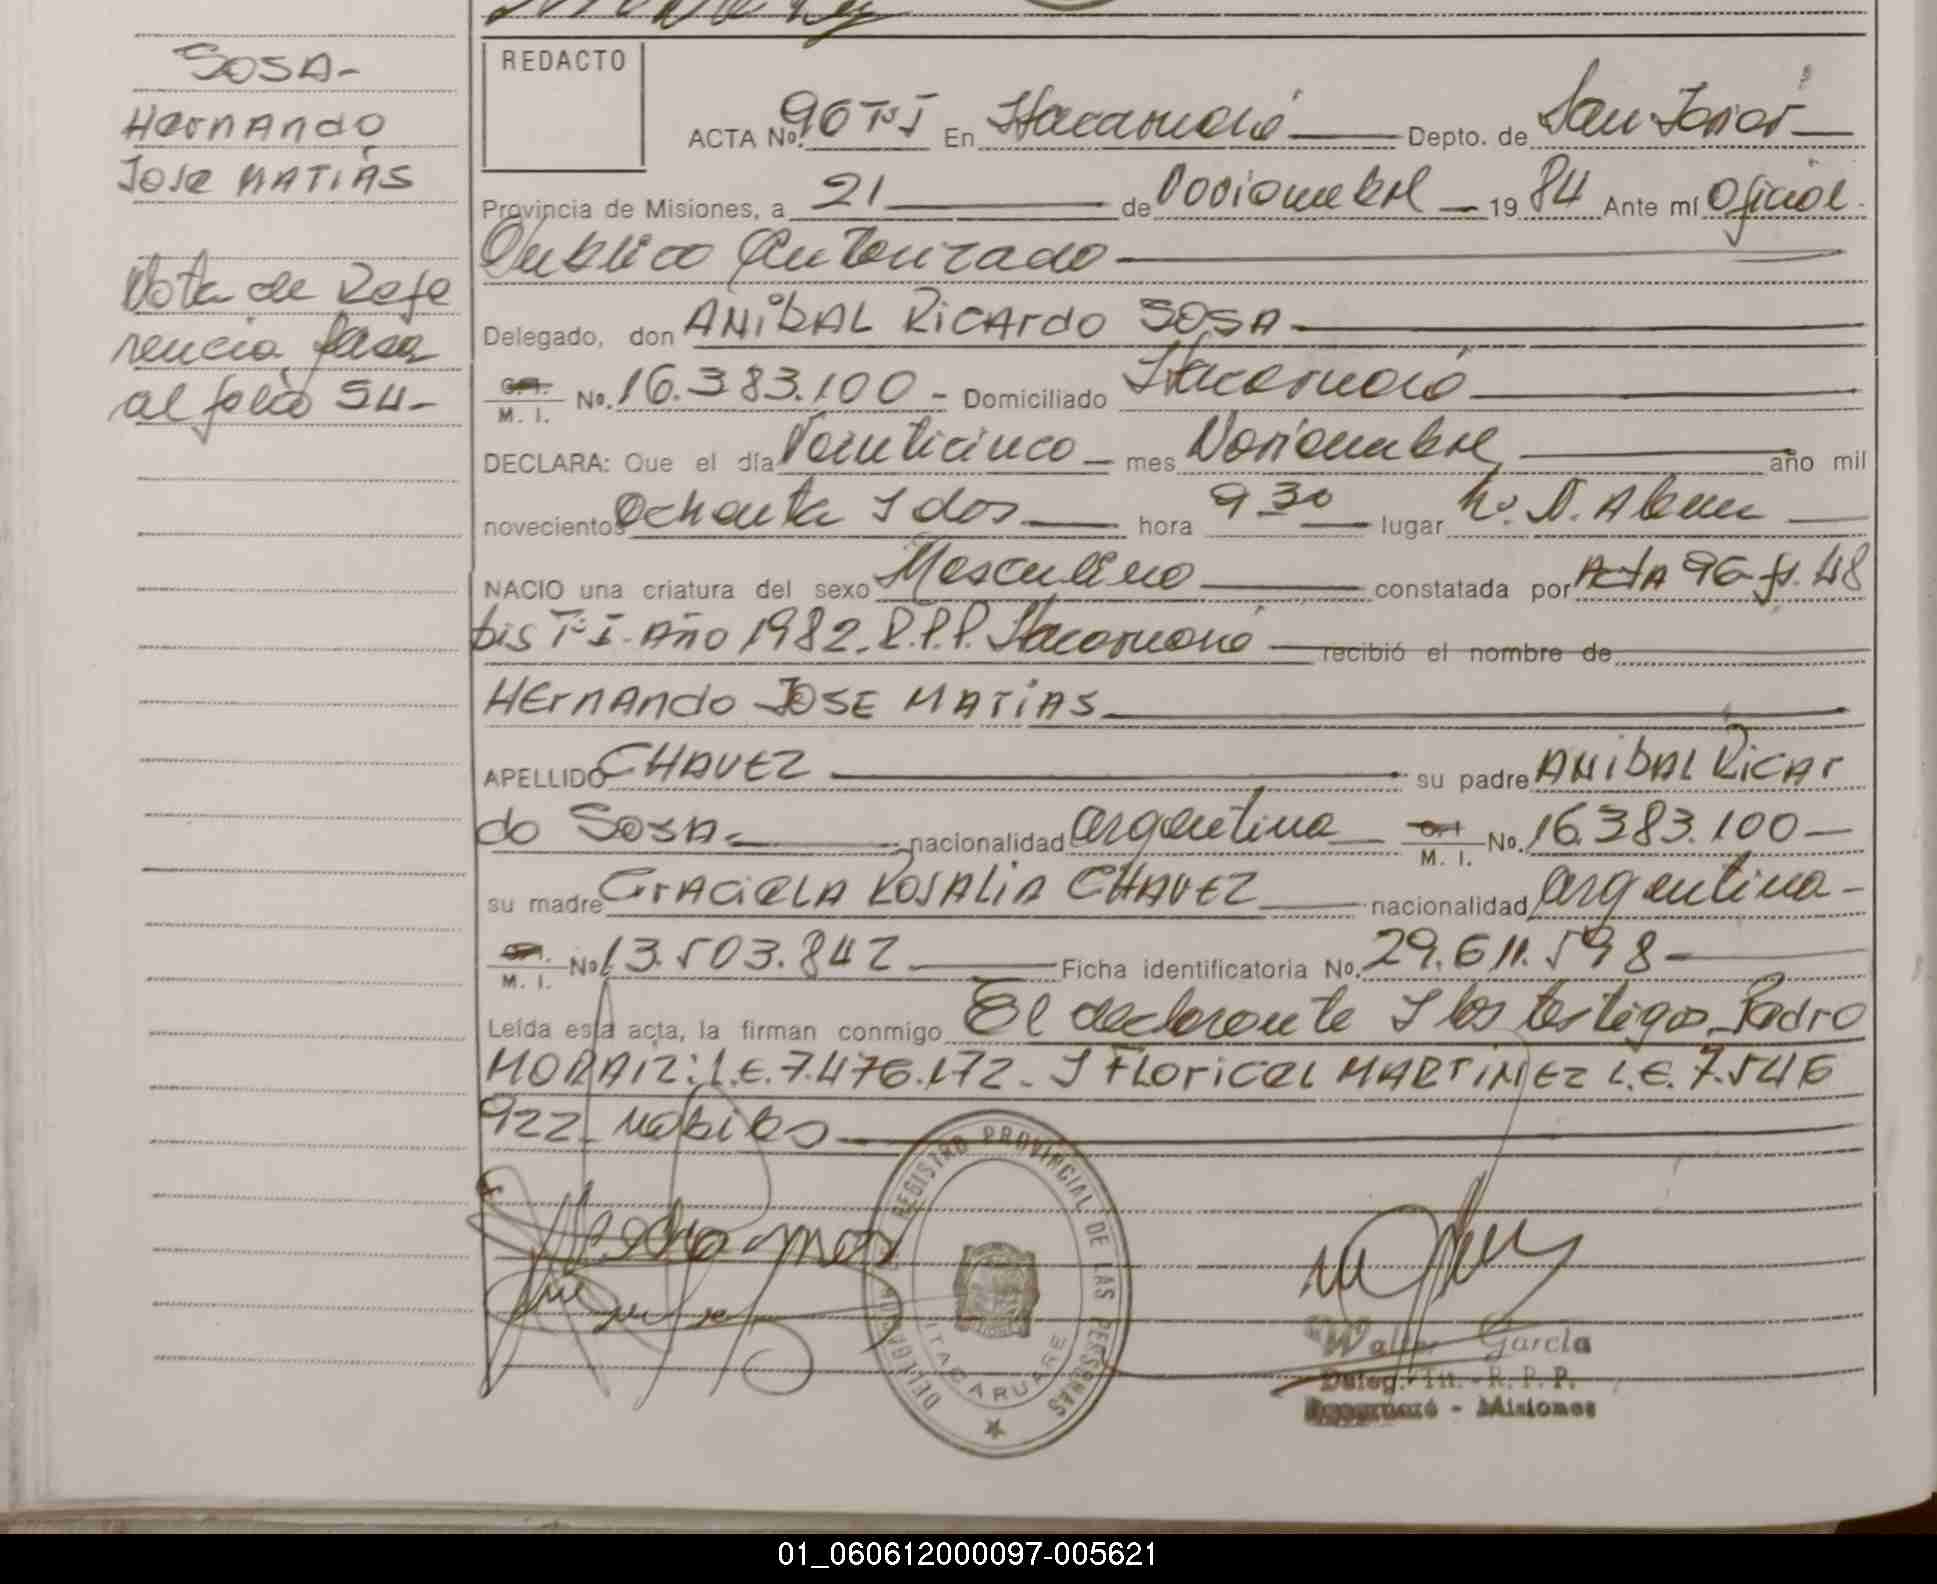 SOSA-
Hernando
Jose MATIAS
Nota de Refe
rencia pasa
al folio 54-
REDACTO
ACTA No. 90 Tº I En Itacaruaré Depto. de San Javier
Provincia de Misiones, a 21 de Noviembre 1984 Ante mí Oficial
Publico Autorizado
Delegado, don ANIBAL RICARDO SOSA
C.I. M. I. No. 16.383.100 - Domiciliado Itacaruaré
DECLARA: Que el día Veinticinco mes Noviembre año mil
novecientos Ochenta y dos hora 9 30 lugar L. N. Alem
NACIO una criatura del sexo Masculino constatada por Acta 96 fº. 48
bis Tº I. Año 1982. R.P.P. Itacaruaré recibió el nombre de
HERNANDO JOSE MATIAS
APELLIDO CHAVEZ su padre ANIBAL RICAR
do SOSA nacionalidad argentina C.I. M. I. No. 16.383.100
su madre GRACIELA ROSALIA CHAVEZ nacionalidad argentina
C.I. M. I. No. 13.503.842 Ficha identificatoria No. 29.611.598
Leída esta acta, la firman conmigo El declarante y los testigos Pedro
MORAIZ: L.E. 7.476.172. y FLORICEL MARTINEZ L.E. 7.546
922 habiles
DELEGACION REGISTRO PROVINCIAL DE LAS PERSONAS
ITACARUARE
Walter García
Deleg. Tit. - R. P. P.
Itacaruaré - Misiones
01_060612000097-005621